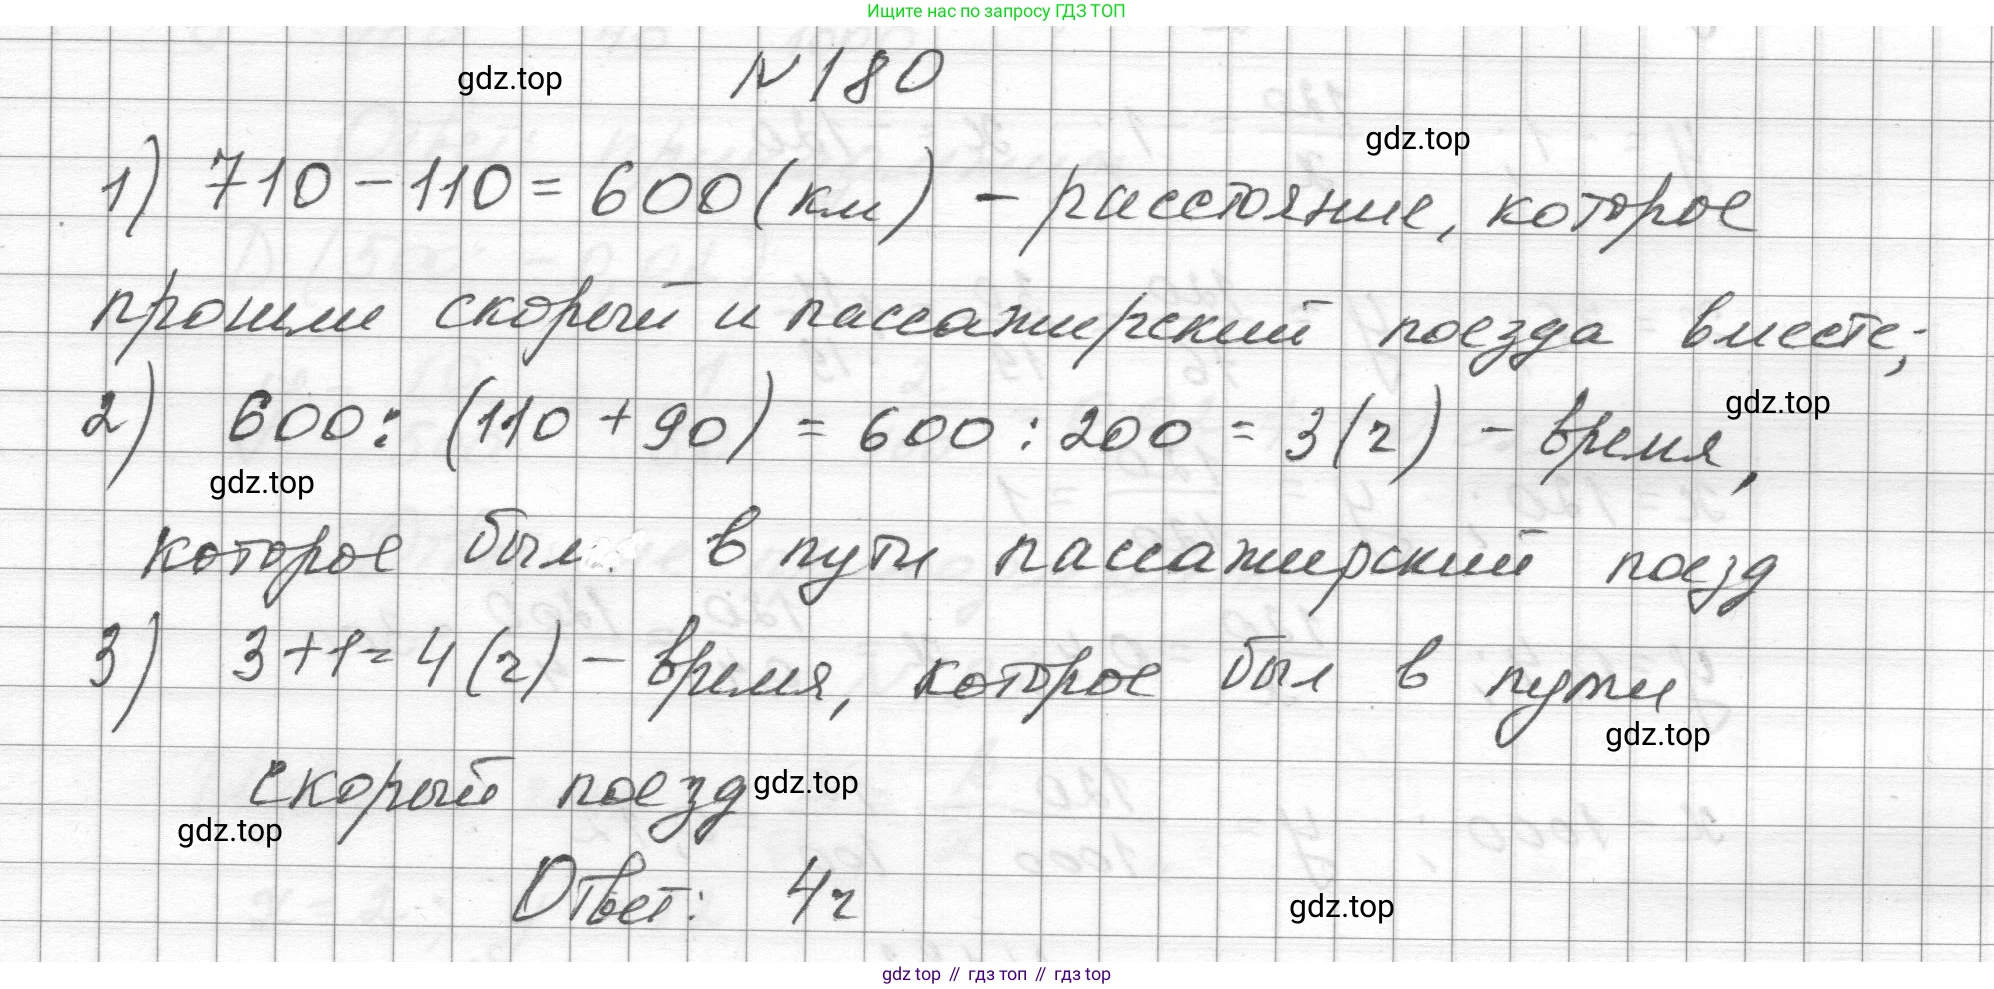 Ищите нас по запросу ГДЗ ТОП
N 180
gdz.top
gdz.top
1) 710 - 110 = 600 (км) - расстояние, которое
прошли скорый и пассажирский поезда вместе;
2) 600 : (110 + 90) = 600 : 200 = 3 (ч) - время,
gdz.top
gdz.top
которое был в пути пассажирский поезд
3) 3 + 1 = 4 (ч) - время, которое был в пути
gdz.top
скорый поезд
gdz.top
gdz.top
Ответ: 4ч
gdz.top
gdz top // гдз топ // гдз top